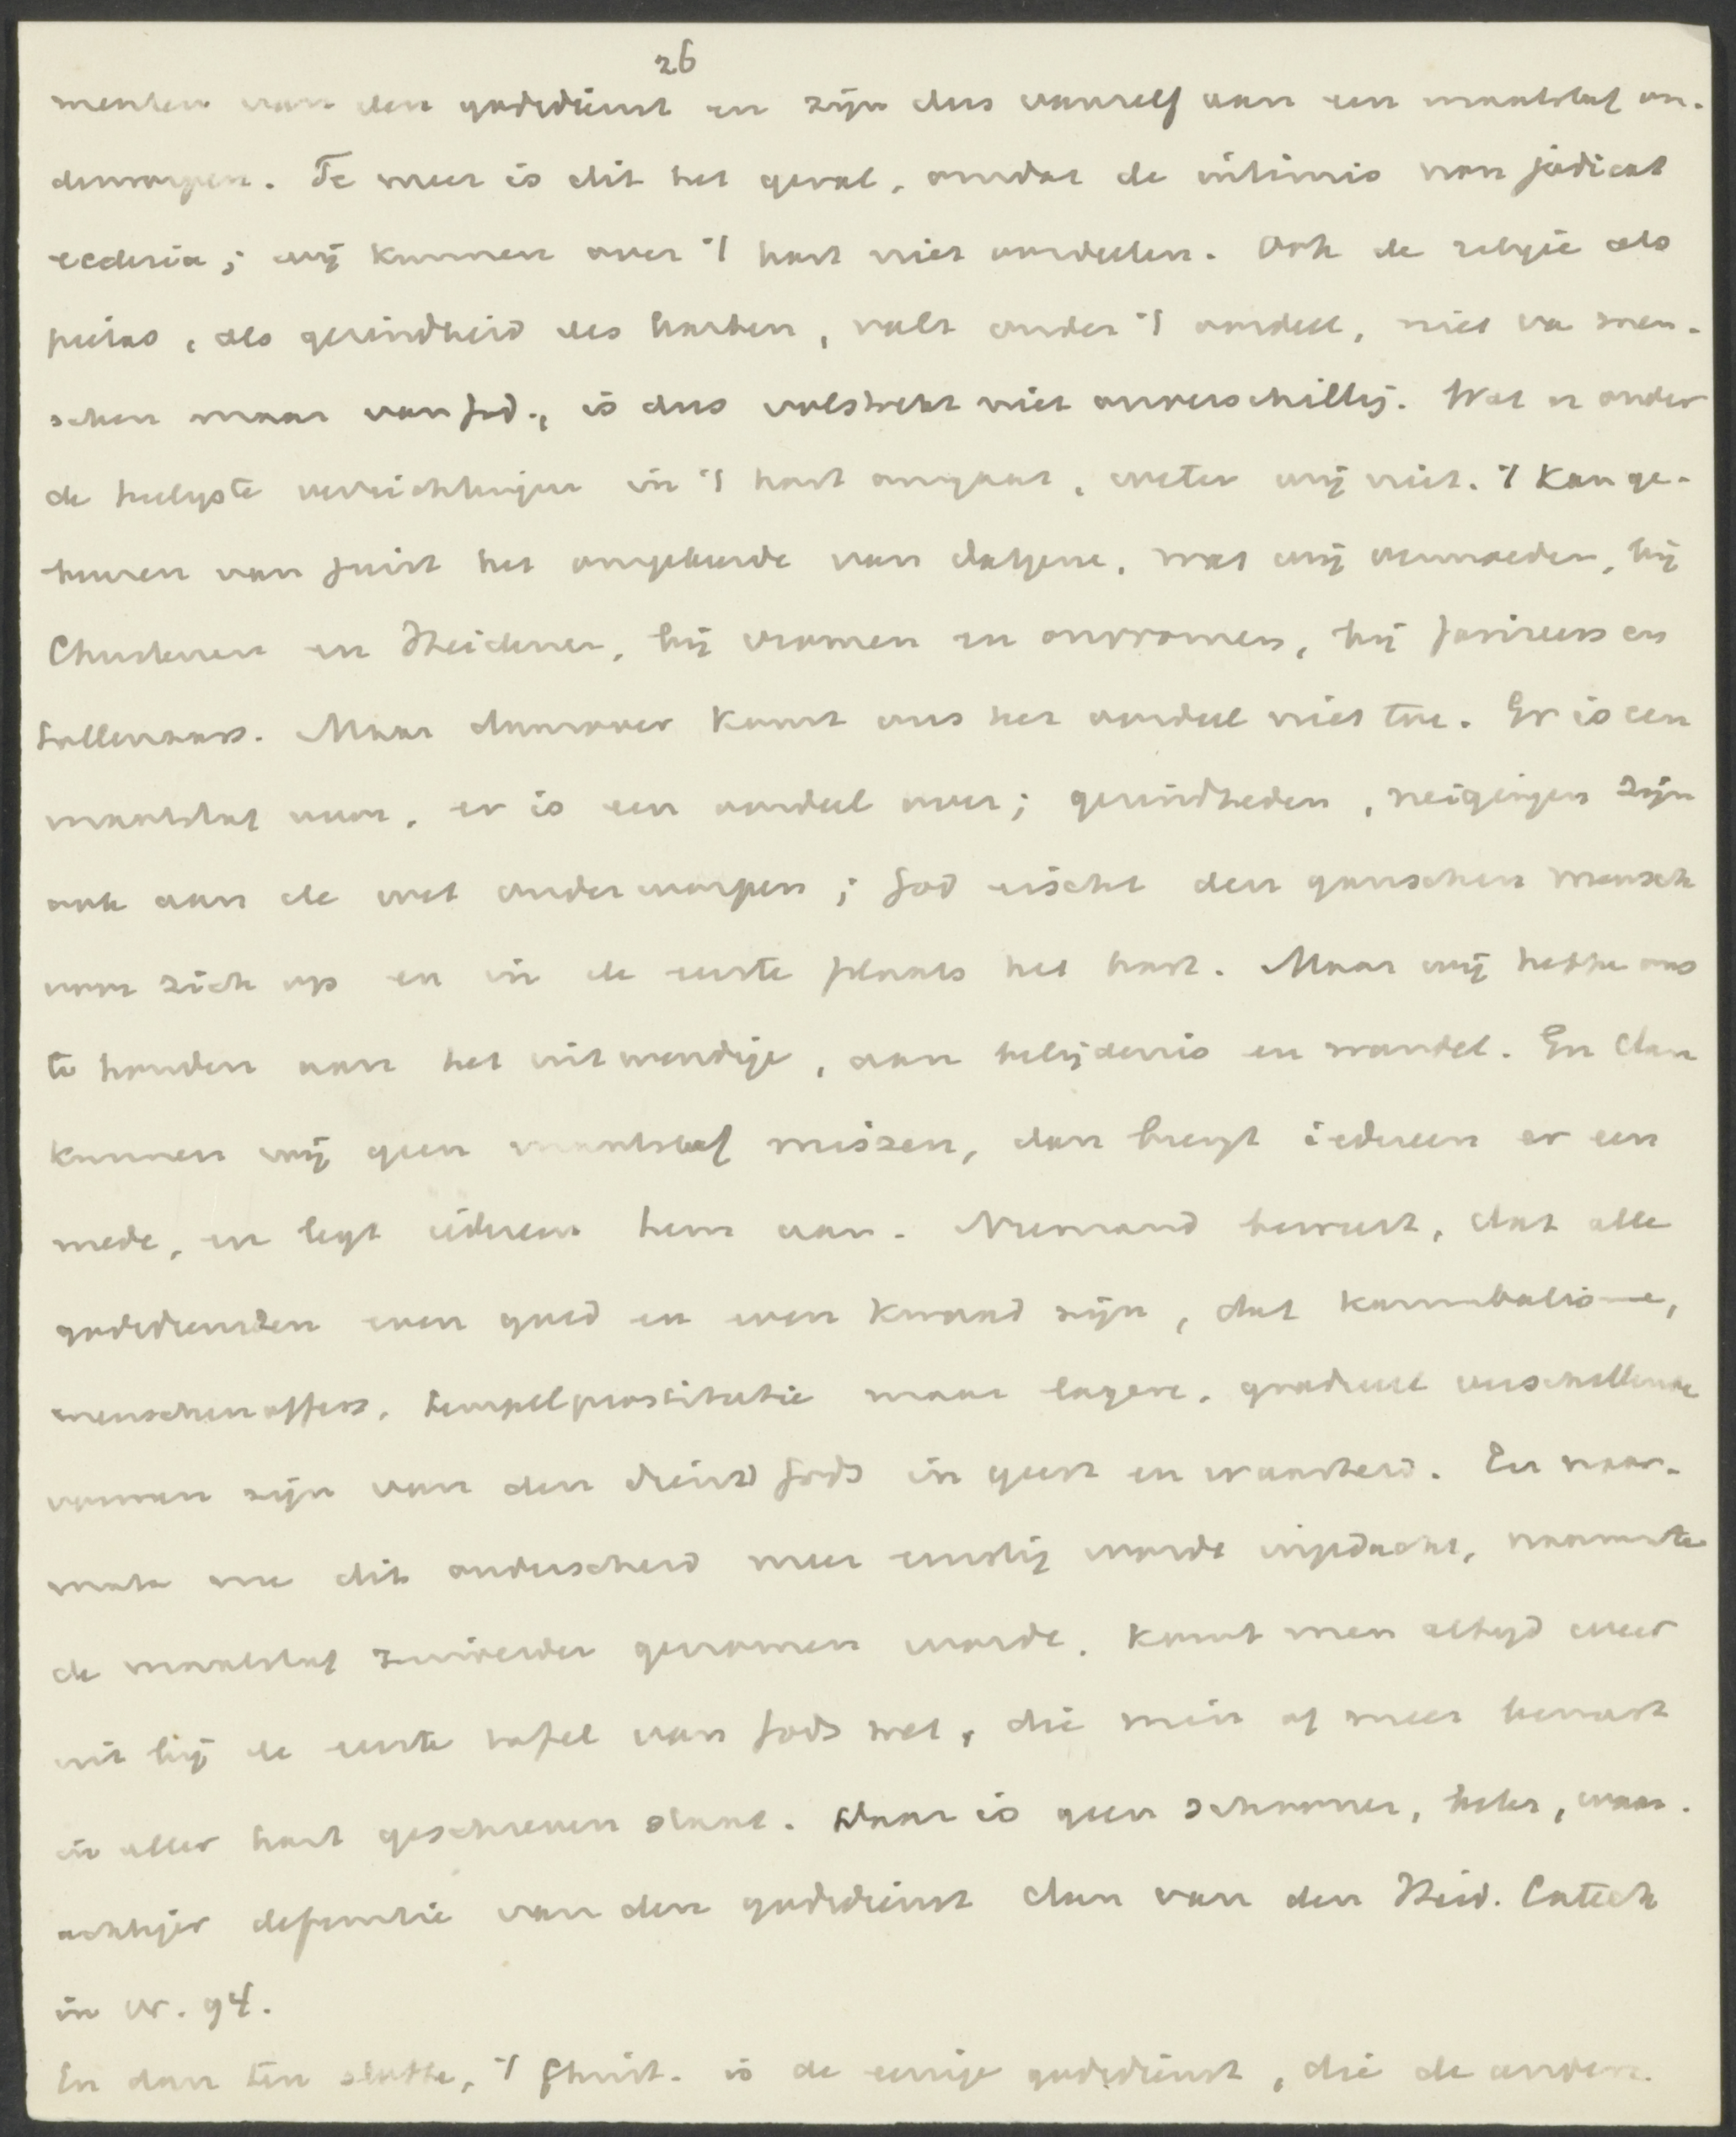 26
menten van den godsdienst en zijn dus vanzelf aan een maatstaf on-
derworpen. Te meer is dit het geval, omdat de intimis non judicat
ecclesia; wij kunnen over 't hart niet oordeelen. Ook de religie als
pietas, als gezindheid des harten, valt onder 't oordeel, niet va men-
schen maar van God., is dus volstrekt niet onverschillig. Wat er onder
de heiligste verrichtingen in 't hart omgaat, weten wij niet. 't Kan ge-
beuren van juist het omgekeerde van datgene, wat wij vermoeden, bij
Christenen en Heidenen, bij vromen en onvromen, bij farizeers en
tollenaars. Maar daarover komt ons het oordeel niet toe. Er is een
maatstaf voor, er is een oordeel over; gezindheden, neigingen zijn
ook aan de wet onderworpen; God eischt den ganschen mensch
voor zich op en in de eerste plaats het hart. Maar wij hebbe ons
te houden aan het uitwendige, aan belijdenis en wandel. En dan
kunnen wij geen maatstaf missen, dan brengt iedereen er een
mede, en legt iedereen hem aan. Niemand beweert, dat alle
godsdiensten even goed en even kwaad zijn, dat kannibalisme,
menschenoffers, tempelprostitutie maar lagere, gradueel verschillende
vormen zijn van den dienst Gods in geest en waarheid. En naar-
mate me dit onderscheid meer ernstig worde ingedacht, naarmate
de maatstaf zuiverder genomen worde, komt men altijd weer
uit bij de eerste tafel van Gods wet, die min of meer bewust
in aller hart geschreven staat. Daar is geen schooner, beter, waar-
achtiger definitie van den godsdienst dan van den Heid. Catech
in vr. 94.
En dan ten slotte, 't Christ. is de eenige godsdienst, die de andere.